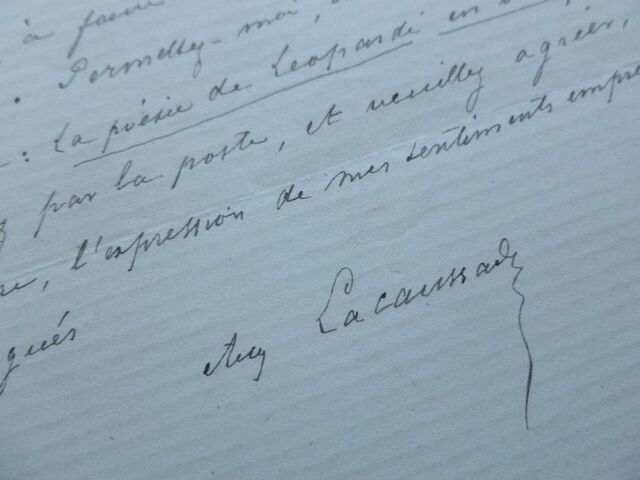 à faire
. Permettez-moi,
: La poésie de Leopardi en
par la poste, et veuillez agréer,
re, l'expression de mes sentiments empre
gués
Aug Lacaussade